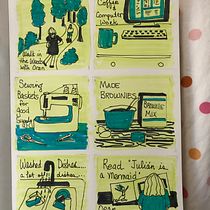 Walk in
The Woods
with Oran
Coffee
&
Computer
Work
Sewing
Baskets
for
Good
MADE
BROWNIES
BROWNIE
MIX
Washed Dishes...
a lot of dishes...
Read "Julian is
a Mermaid"